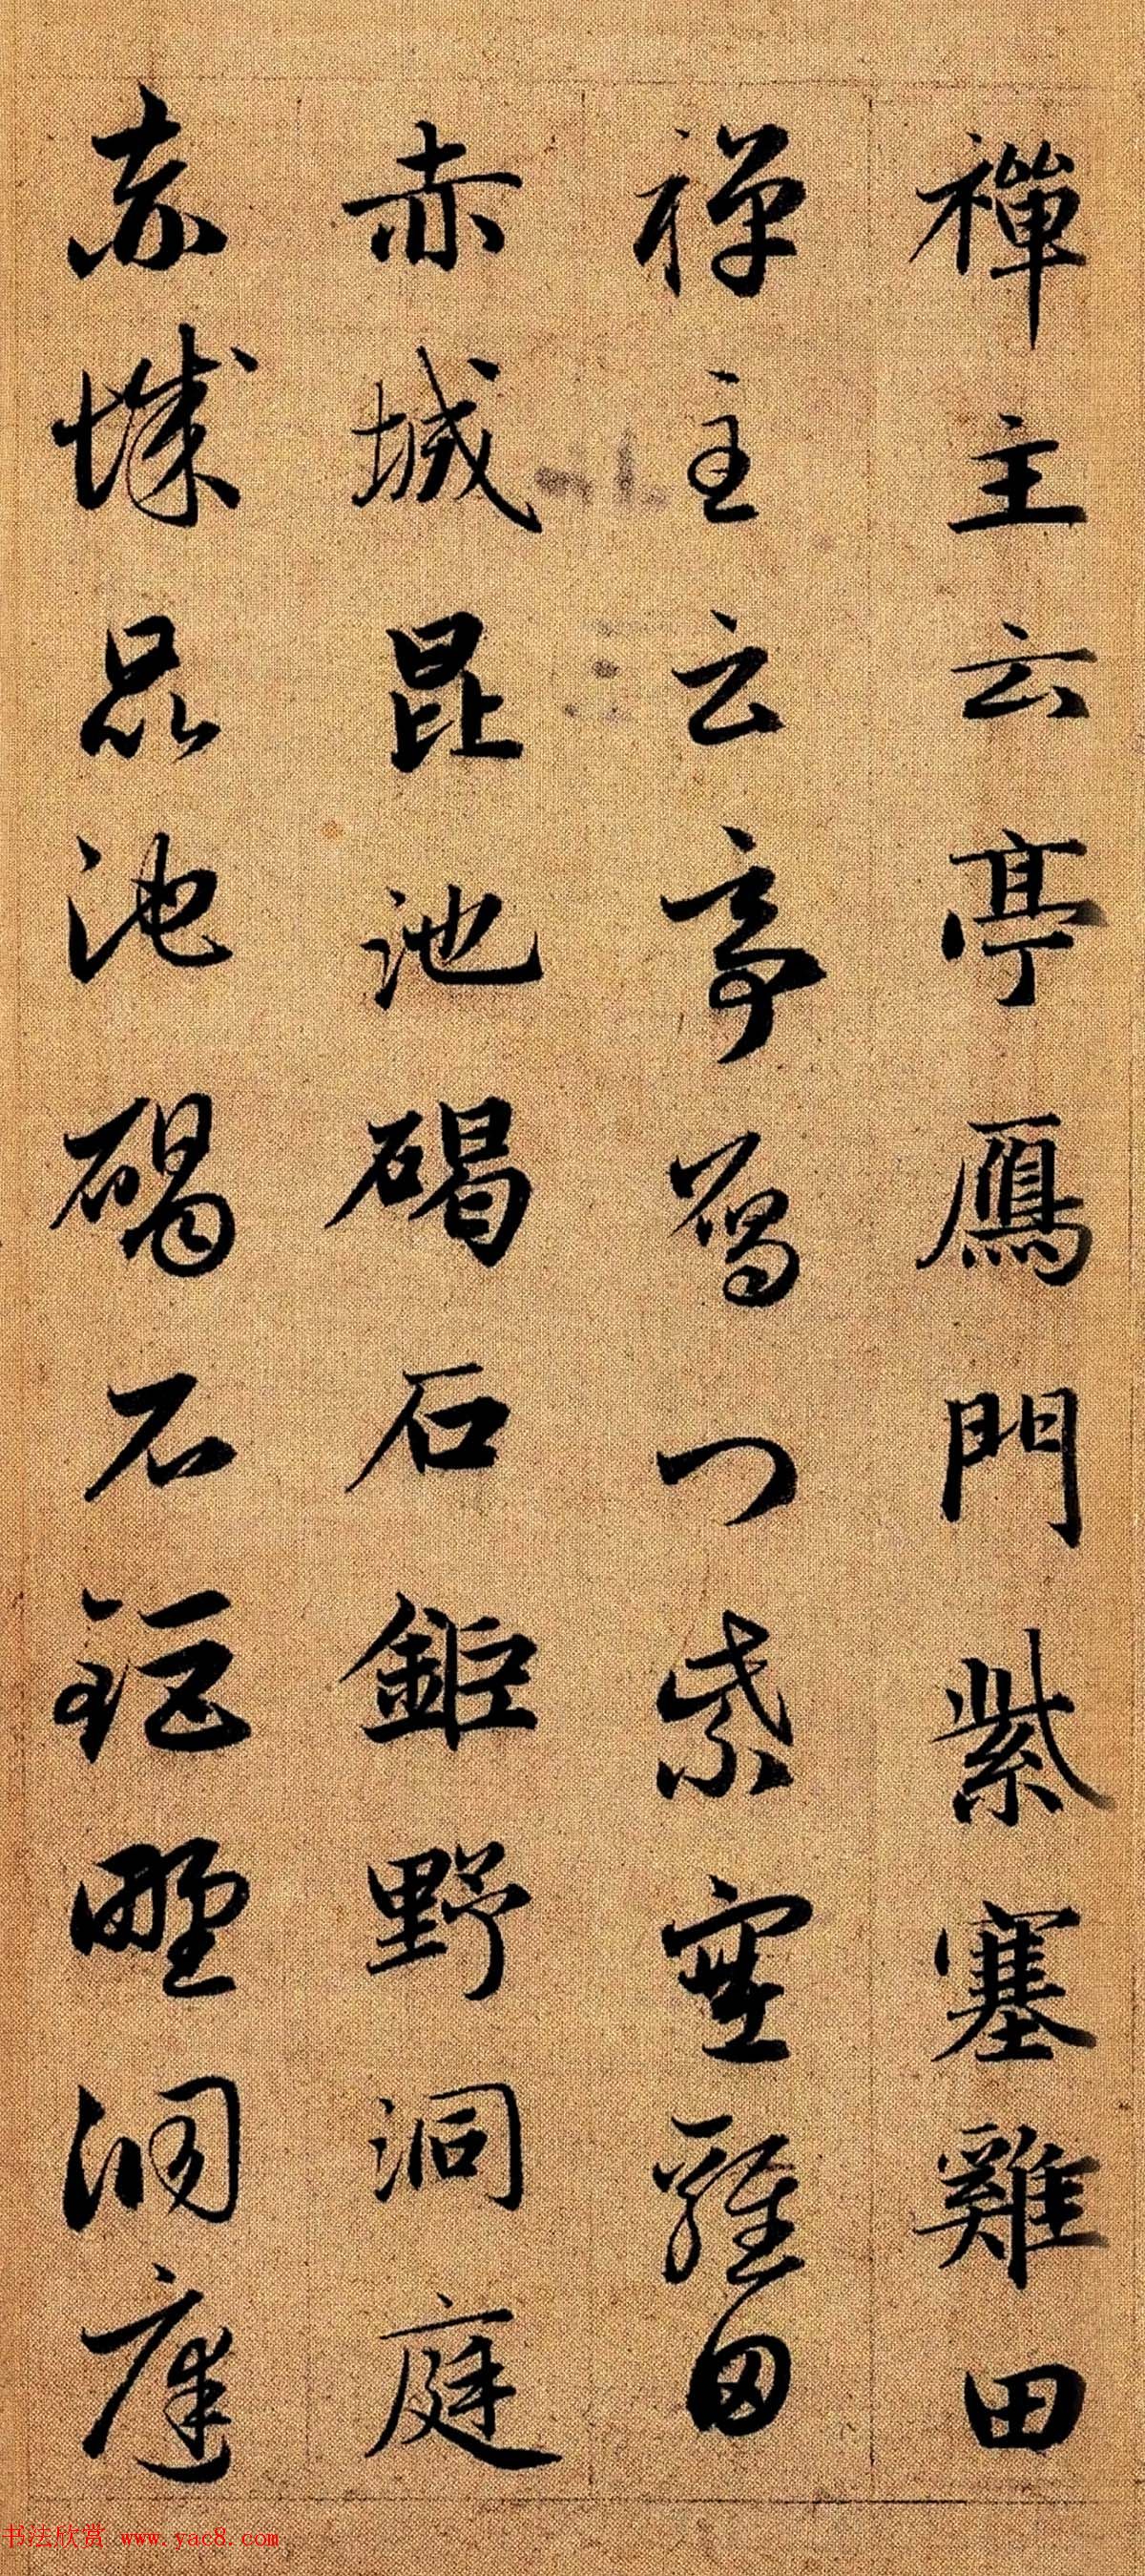 禪主云亭鴈門紫塞雞田
禪主云亭鴈門紫塞雞田
赤城昆池碣石鉅野洞庭
赤城昆池碣石鉅野洞庭
书法欣赏 www.yac8.com